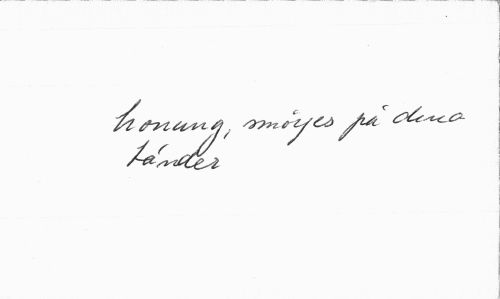 honung, smörjes på dina
tänder